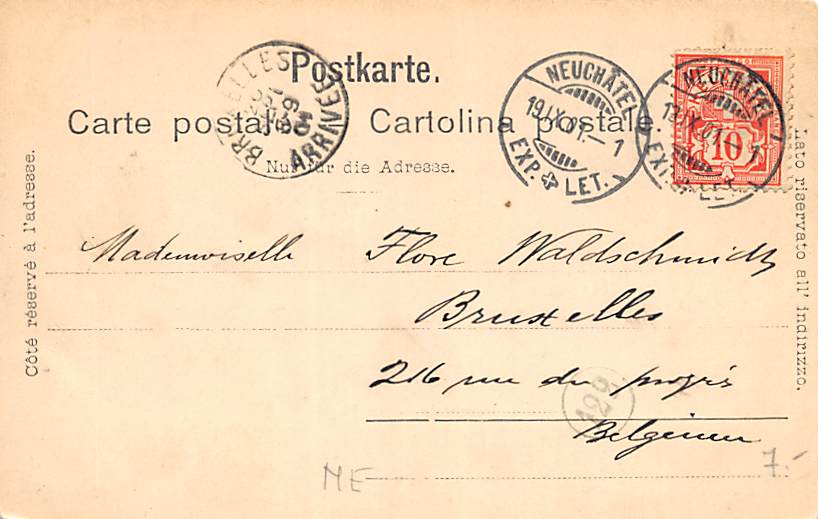 Postkarte.
Carte postale. Cartolina postale.
Nur für die Adresse.
BRUXELLES
ARRIVEE
NEUCHÂTEL
19.IX.01.–1
EXP. LET.
NEUCHÂTEL
19.IX.01.–1
EXP. LET.
10
Côté réservé à l'adresse.
Lato riservato all' indirizzo.
Mademoiselle Flore Waldschmidt
Bruxelles
216 rue du progrès
422
Belgien
ME
7.-